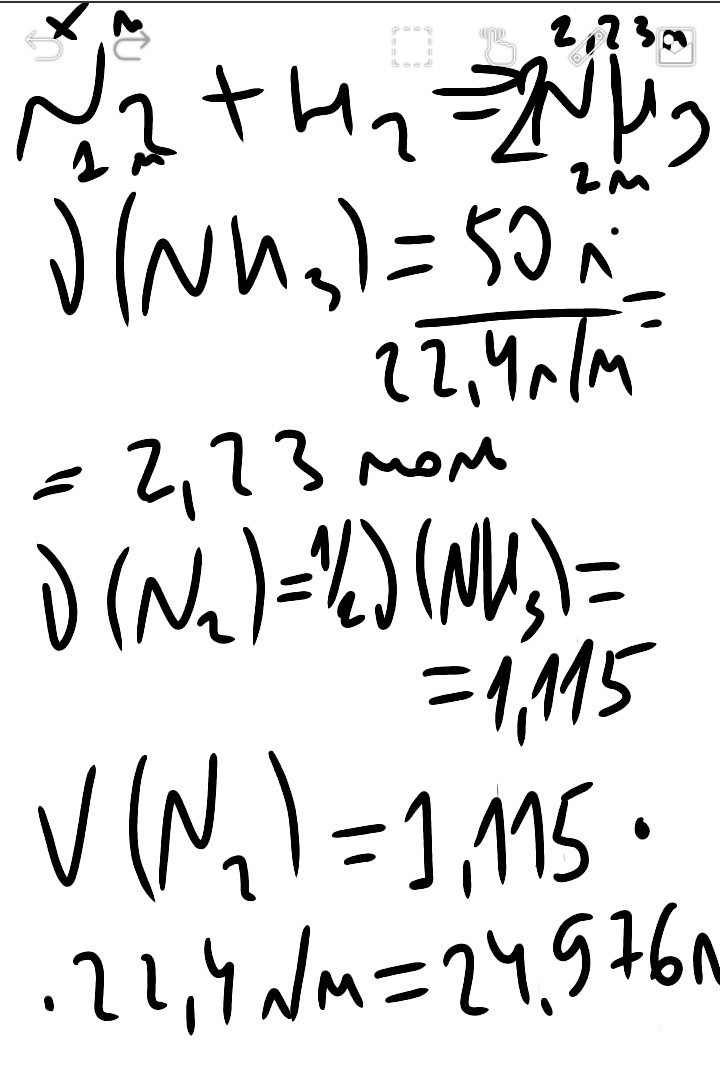 x л 2,23 м
N₂ + H₂ = 2NH₃
1 м 2 м
ν(NH₃) = 50 л
22,4 л/м =
= 2,23 моль
ν(N₂) = 1/2 ν(NH₃) =
= 1,115
V(N₂) = 1,115 ·
· 22,4 л/м = 24,976 л